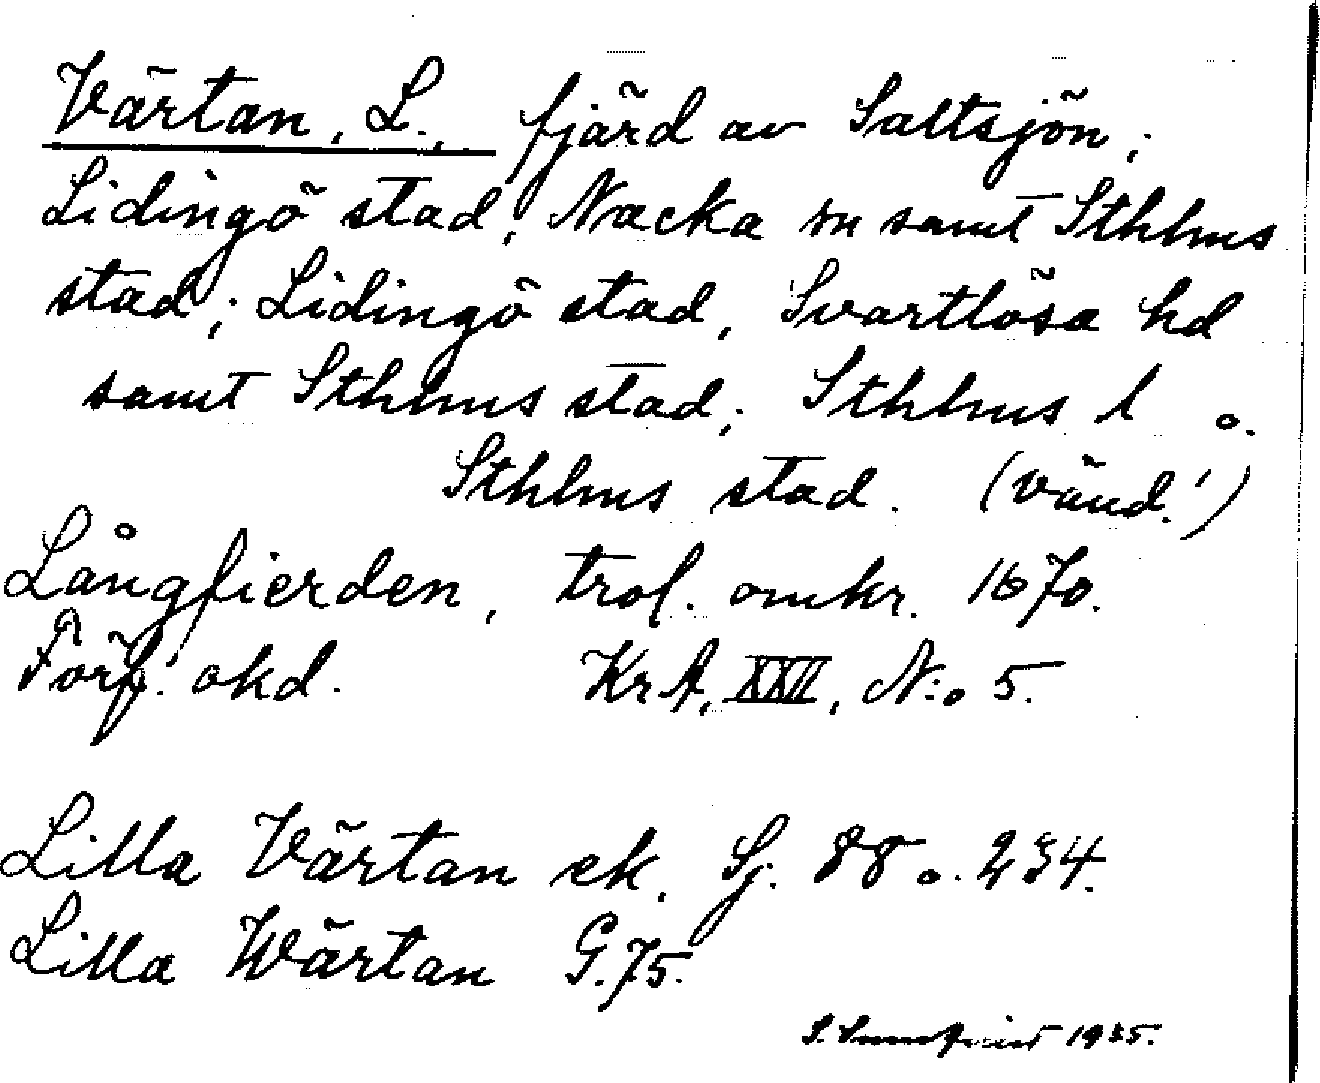 Värtan, L., fjärd av Saltsjön;
Lidingö stad, Nacka sn samt Sthlms
stad; Lidingö stad, Svartlösa hd
samt Sthlms stad; Sthlms l o.
Sthlms stad. (vänd!)
Långfierden, trol. omkr. 1670.
Förf. okd. KrA, XXII, N:o 5.
Lilla Värtan ek. Sj. 88 o. 234.
Lilla Wärtan G.75.
S. 1935.